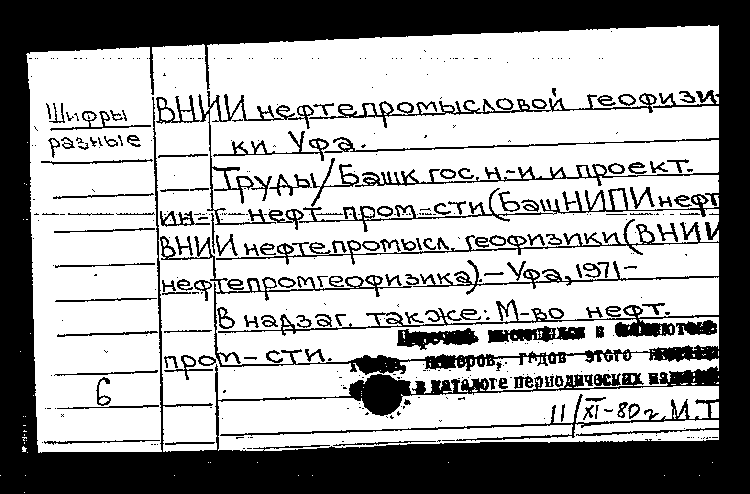 Шифры
разные
ВНИИ нефтепромысловой геофизи-
ки. Уфа.
Труды/Башк. гос. н.-и. и проект.
ин-т нефт. пром-сти (БашНИПИнефт
ВНИИ нефтепромысл. геофизики (ВНИИ
нефтепромгеофизика). – Уфа, 1971-
В надзаг. также: М-во нефт.
пром-сти.
в
номеров, годов этого
в каталоге периодических
6
11/XI-80 г. М.Т